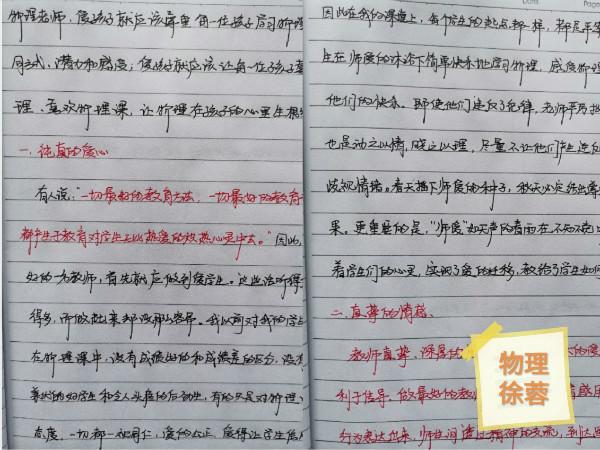 物理老师,爱孩子就应该尊重每一位孩子学习物理
同方式,潜力和感受;爱孩子就应该让每一位孩子喜
理、喜欢物理课,让物理在孩子的心里生根
一.纯真的爱心
有人说:“一切最好的教育方法,一切最好的教育
都产生于教育对学生无比热爱的炽热心灵中去。”因此,
好的一名教师,首先就应做到爱学生。这些话听得
得多,听做起来却没那么容易。我以前对我的学生
在物理课中,没有成绩好的和成绩差的区分,没有
喜欢的好学生和令人头疼的后动生,有的只是对物理
态度,一切都一视同仁,爱的公正,赢得让学生信
因此在我的课堂上,每个学生的起点都一样,都是平等
生在师爱的沐浴下简单快乐地学习物理,感受物理
他们的快乐。即使他们违反了纪律,老师平易
也是动之以情,晓之以理,尽量不让他们产生逆反
歧视情绪。春天播下师爱的种子,秋天必定结出
果。更重要的是,“师爱”如无声的春雨在不知不觉中
着学生们的心灵,实现了爱的迁移,教给了学生如何
二.真挚的情操、
教师真挚、深厚的 的爱
利于信导,做最好的教 情感用
行为表达出来,师生间通过精神的交流,到达
物理
徐蓉